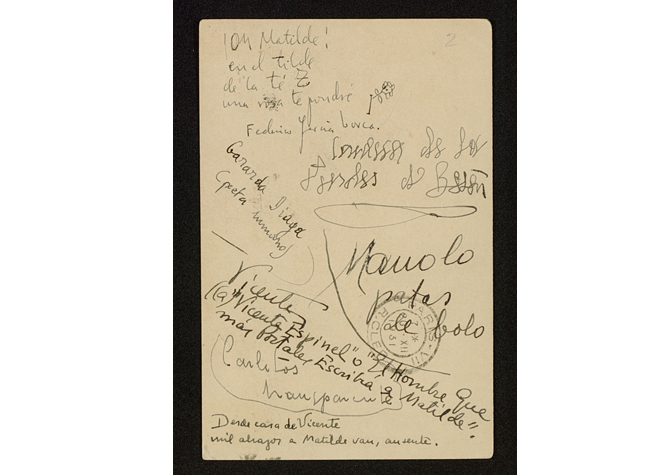 ¡Oh Matilde!
en el tilde
de la té Z
una rosa te pondré
Federico García Lorca.
2
Condesa de las
de
Gerarda Diaga
(poeta humano)
Manolo
patas
de bolo
Vicente
(a) "Vicente Espinel" o "El Hombre que
más Postales Escribía a Matilde".
PARIS VII
XII
31
Carlotos
transparente
Desde casa de Vicente
mil abrazos a Matilde van, ausente.